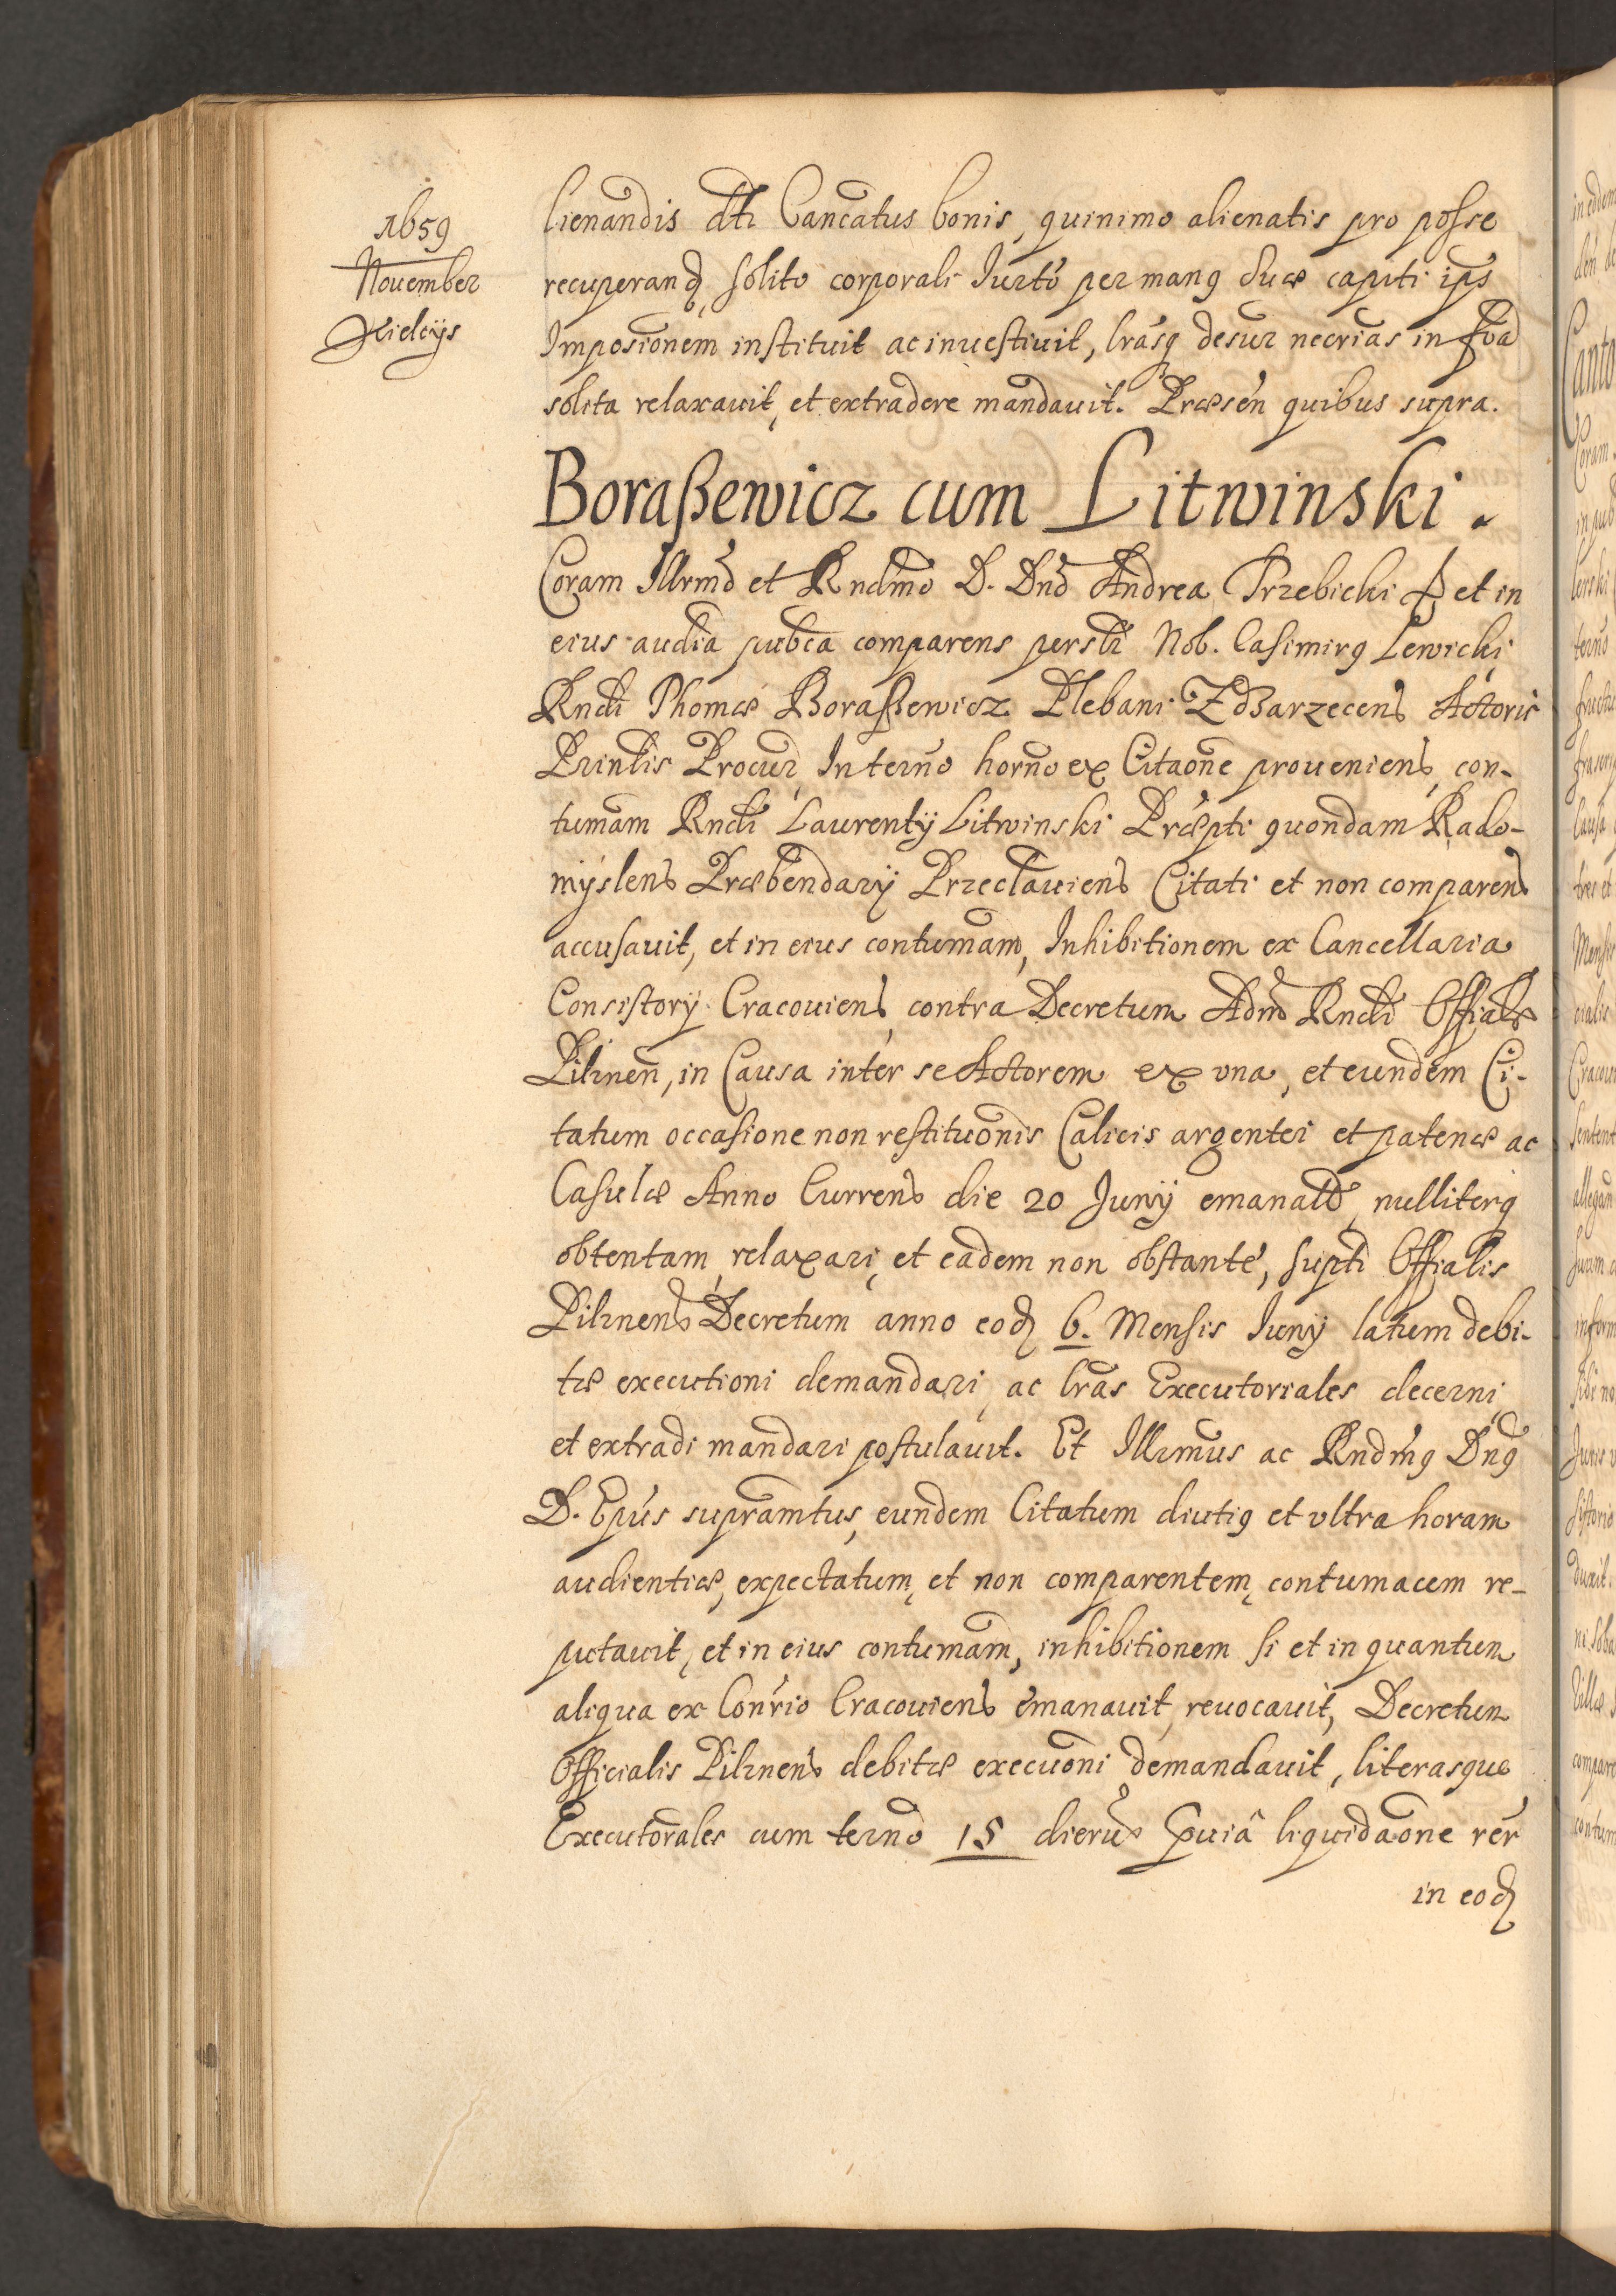 1659
November
Kielcijs
lienandis dti Cancatus bonis, quinimo alienatis pro posse
recuperand, solito corporali Iurto per manq suæ capiti ips
Imposionem instituit ac inuestiuit, lrasq desur necrias in foa
solita relaxauit, et extradere mandauit. Præsen quibus supra.
Boraßewicz cum Litwinski.
Coram Illrmo et Rndmo D. Dno Andrea Trzebicki et in
eius audia pubca comparens persli Nob. Casimirq Lewicki
Rndi Thomæ Boraßewicz Plebani Zdzarzecens Actoris
Printis Procur, In terno horno ex Citaone proueniens, con-
tumam Rndi Laurentij Litwinski Præpti quondam Rado-
myslens Præbendarij Przeclauiens Citati et non comparens
accusauit, et in eius contumam, Inhibitionem ex Cancellaria
Consistorij Cracouiens, contra Decretum Adm Rndi Offialis
Pilznen, in Causa inter se Actorem ex vna, et eundem Ci-
tatum occasione non restituonis Calicis argentei et patenæ ac
Casulæ Anno Currens die 20 Junij emanato, nulliterq
obtentam, relaxari, et eadem non obstante, supti Offialis
Pilznens Decretum anno eod 6. Mensis Iunij latum debi-
tæ executioni demandari, ac lras Executoriales decerni,
et extradi mandari postulauit. Et Illrmus ac Rndmq Dnq
D. Epus supramtus, eundem Citatum diutiq et vltra horam
audientiæ, expectatum, et non comparentem, contumacem re-
putauit, et in eius contumam, inhibitionem si et in quantum
aliqua ex Conrio Cracouiens emanauit, reuocauit, Decretum
Officialis Pilznens debitæ execuoni demandauit, literasque
Executorales cum terno 15 dieru præuia liquidaone rer
in eod